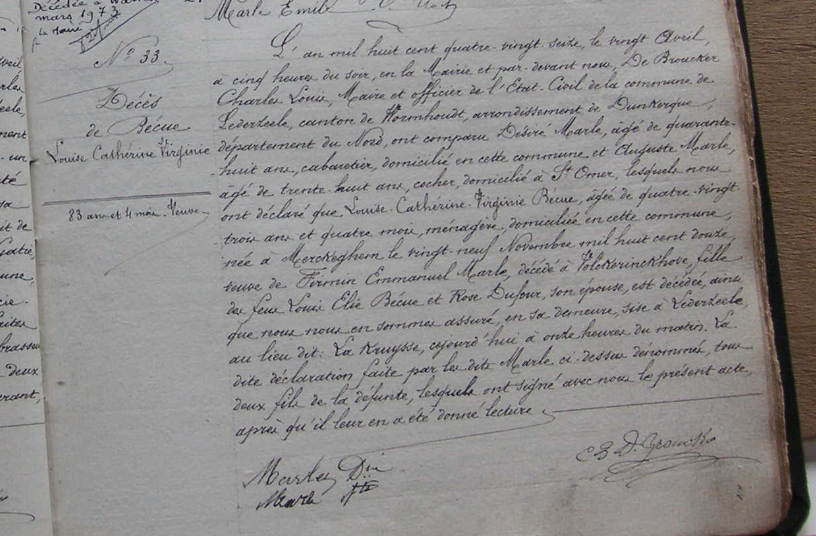 Décédée à
mars 1973
le Maire
Marle Emile
Nº 33
Décès
de Bécue
Louise Cathérine Virginie
83 ans et 4 mois. Veuve
L'an mil huit cent quatre-vingt-seize, le vingt Avril,
à cinq heures du soir, en la Mairie et par-devant nous, De Broucker
Charles Louis, Maire et officier de l'Etat-Civil de la commune de
Lederzeele, canton de Wormhoudt, arrondissement de Dunkerque,
département du Nord, ont comparu Désiré Marle, âgé de quarante-
huit ans, cabaretier, domicilié en cette commune et Auguste Marle,
âgé de trente-huit ans, cocher, domicilié à St Omer, lesquels nous
ont déclaré que Louise-Cathérine-Virginie Bécue, âgée de quatre-vingt
trois ans et quatre mois, ménagère, domiciliée en cette commune,
née à Merckeghem le vingt-neuf Novembre mil huit cent douze,
veuve de Firmin Emmanuel Marle, décédé à Volckerinckhove, fille
des feus Louis Elie Bécue et Rose Dufour, son épouse, est décédée, ainsi
que nous nous en sommes assuré, en sa demeure, sise à Lederzeele,
au lieu dit: La Kruysse, cejourd'hui à onze heures du matin. La
dite déclaration faite par les dits Marle ci-dessus dénommés, tous
deux fils de la défunte, lesquels ont signé avec nous le présent acte,
après qu'il leur en a été donné lecture.
Marle Dré
Marle Ate